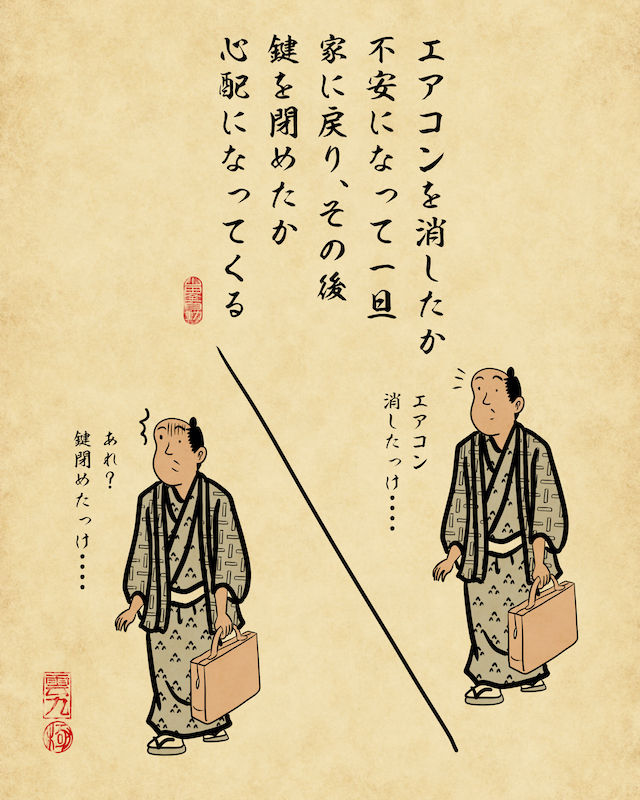 エアコンを消したか
不安になって一旦
家に戻り、その後
鍵を閉めたか
心配になってくる
エアコン
消したっけ‥‥
あれ？
鍵閉めたっけ‥‥
雲九